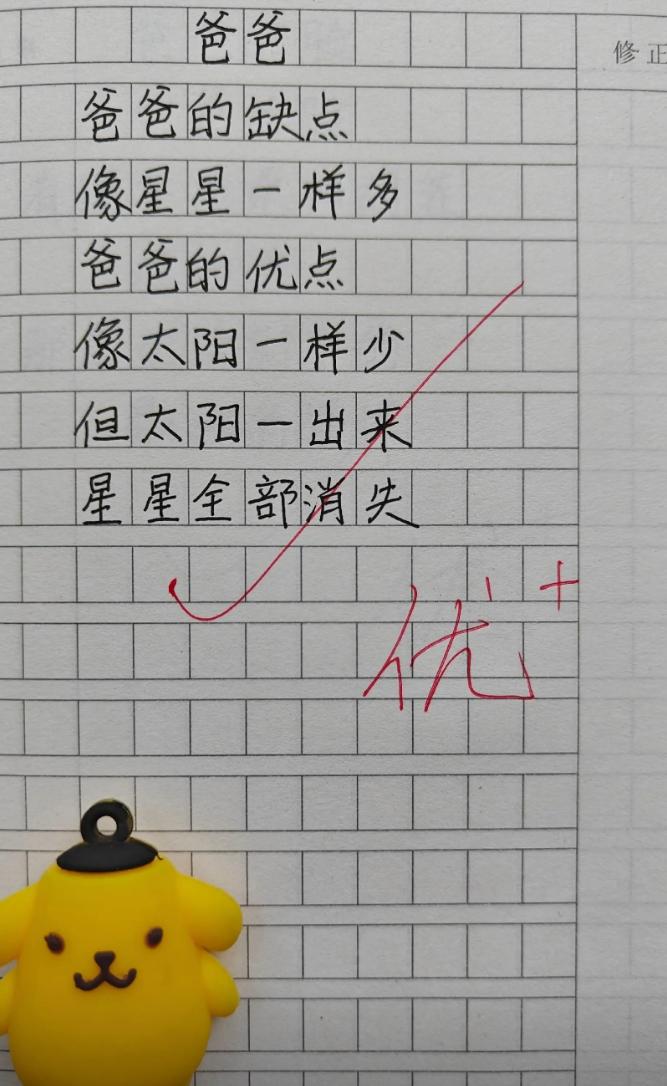 爸爸
修正
爸爸的缺点
像星星一样多
爸爸的优点
像太阳一样少
但太阳一出来
星星全部消失
优+